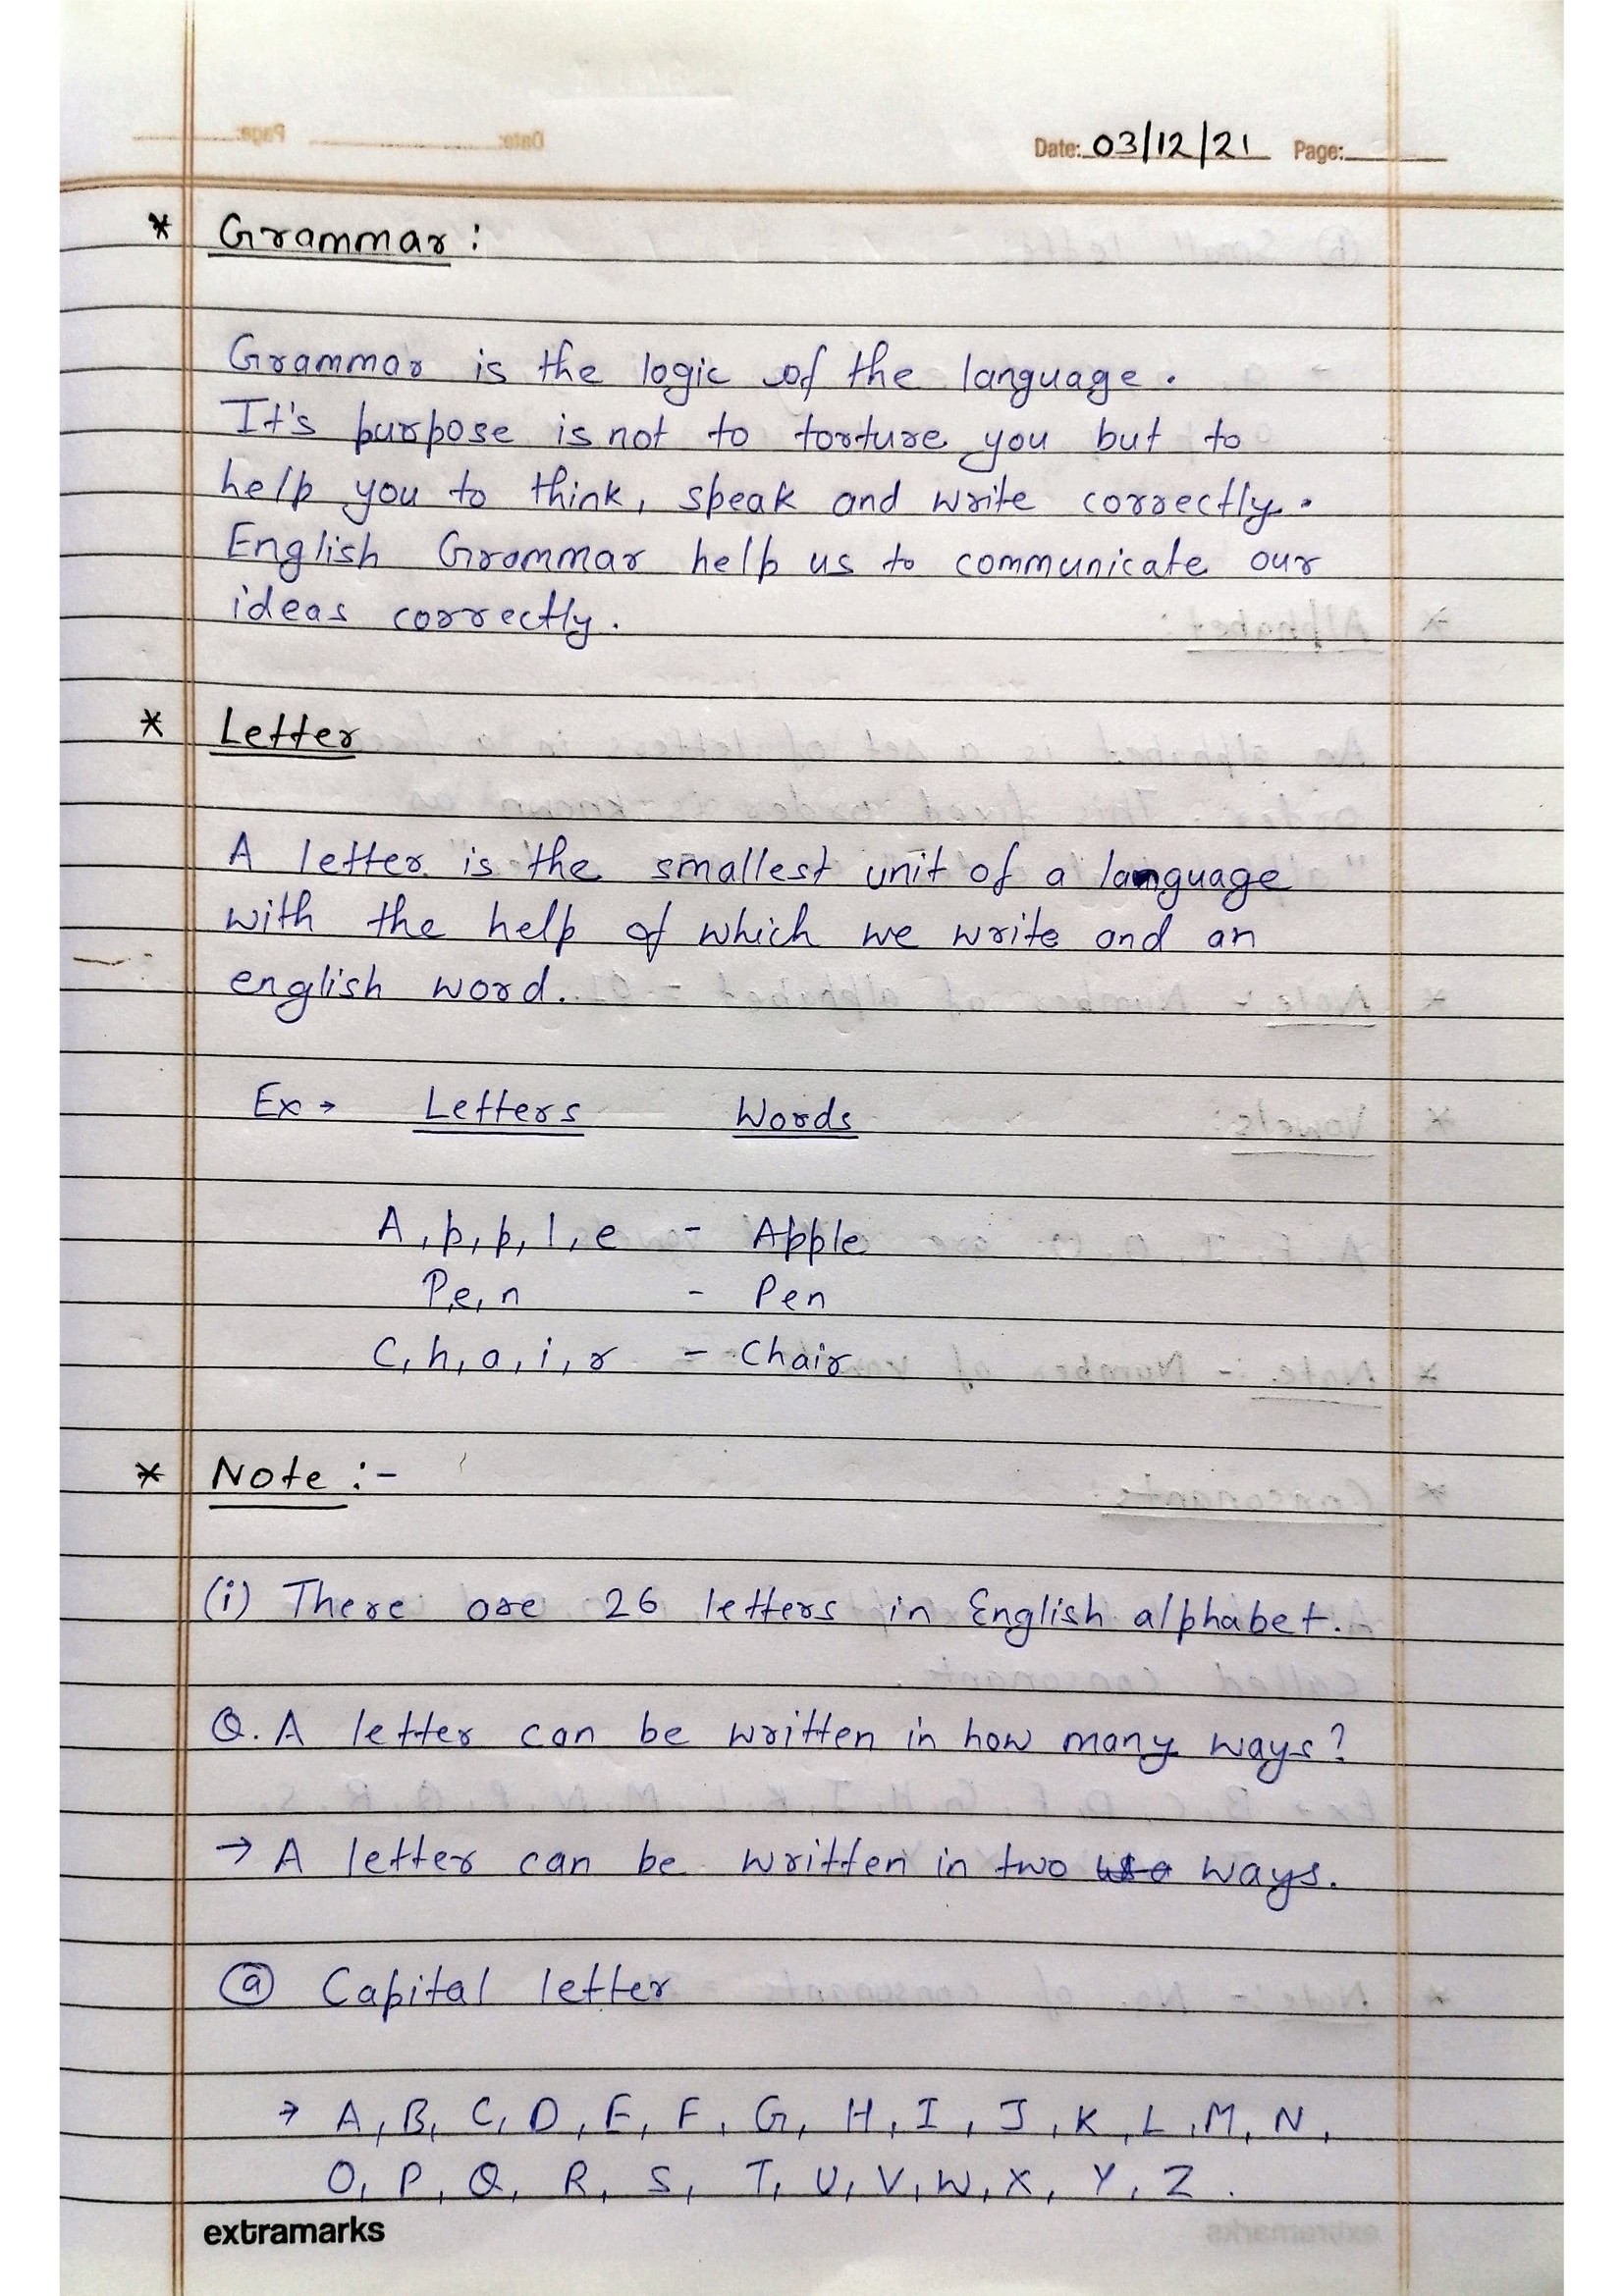 Date: 03/12/21 Page:
* Grammar :
Grammar is the logic of the language.
It's purpose is not to torture you but to
help you to think, speak and write correctly.
English Grammar help us to communicate our
ideas correctly.
* Letter
A letter is the smallest unit of a language
with the help of which we write and an
english word.
Ex → Letters Words
A, p, p, l, e - Apple
P, e, n - Pen
C, h, a, i, r - Chair
* Note :-
(i) There are 26 letters in English alphabet.
Q. A letter can be written in how many ways?
→ A letter can be written in two ways.
(a) Capital letter
→ A, B, C, D, E, F, G, H, I, J, K, L, M, N,
O, P, Q, R, S, T, U, V, W, X, Y, Z.
extramarks